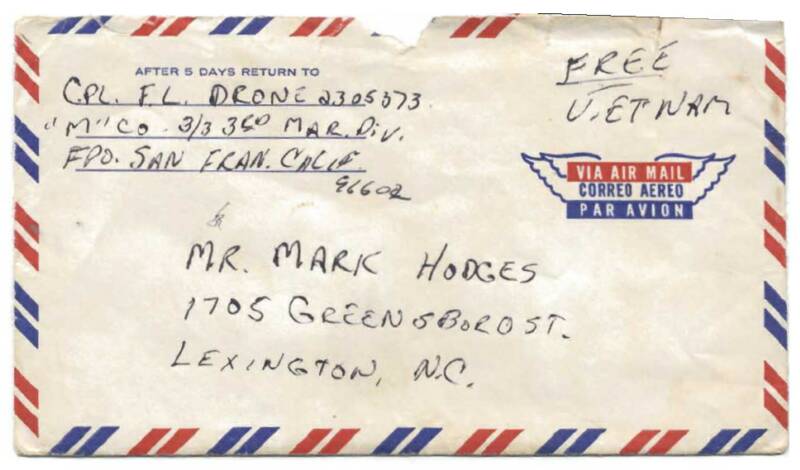 AFTER 5 DAYS RETURN TO
CPL. F.L. DRONE 2305373
"M" CO. 3/3 3RD MAR. DIV.
FPO. SAN FRAN. CALIF.
96602
FREE
VIETNAM
VIA AIR MAIL
CORREO AEREO
PAR AVION
MR. MARK HODGES
1705 GREENSBORO ST.
LEXINGTON, N.C.